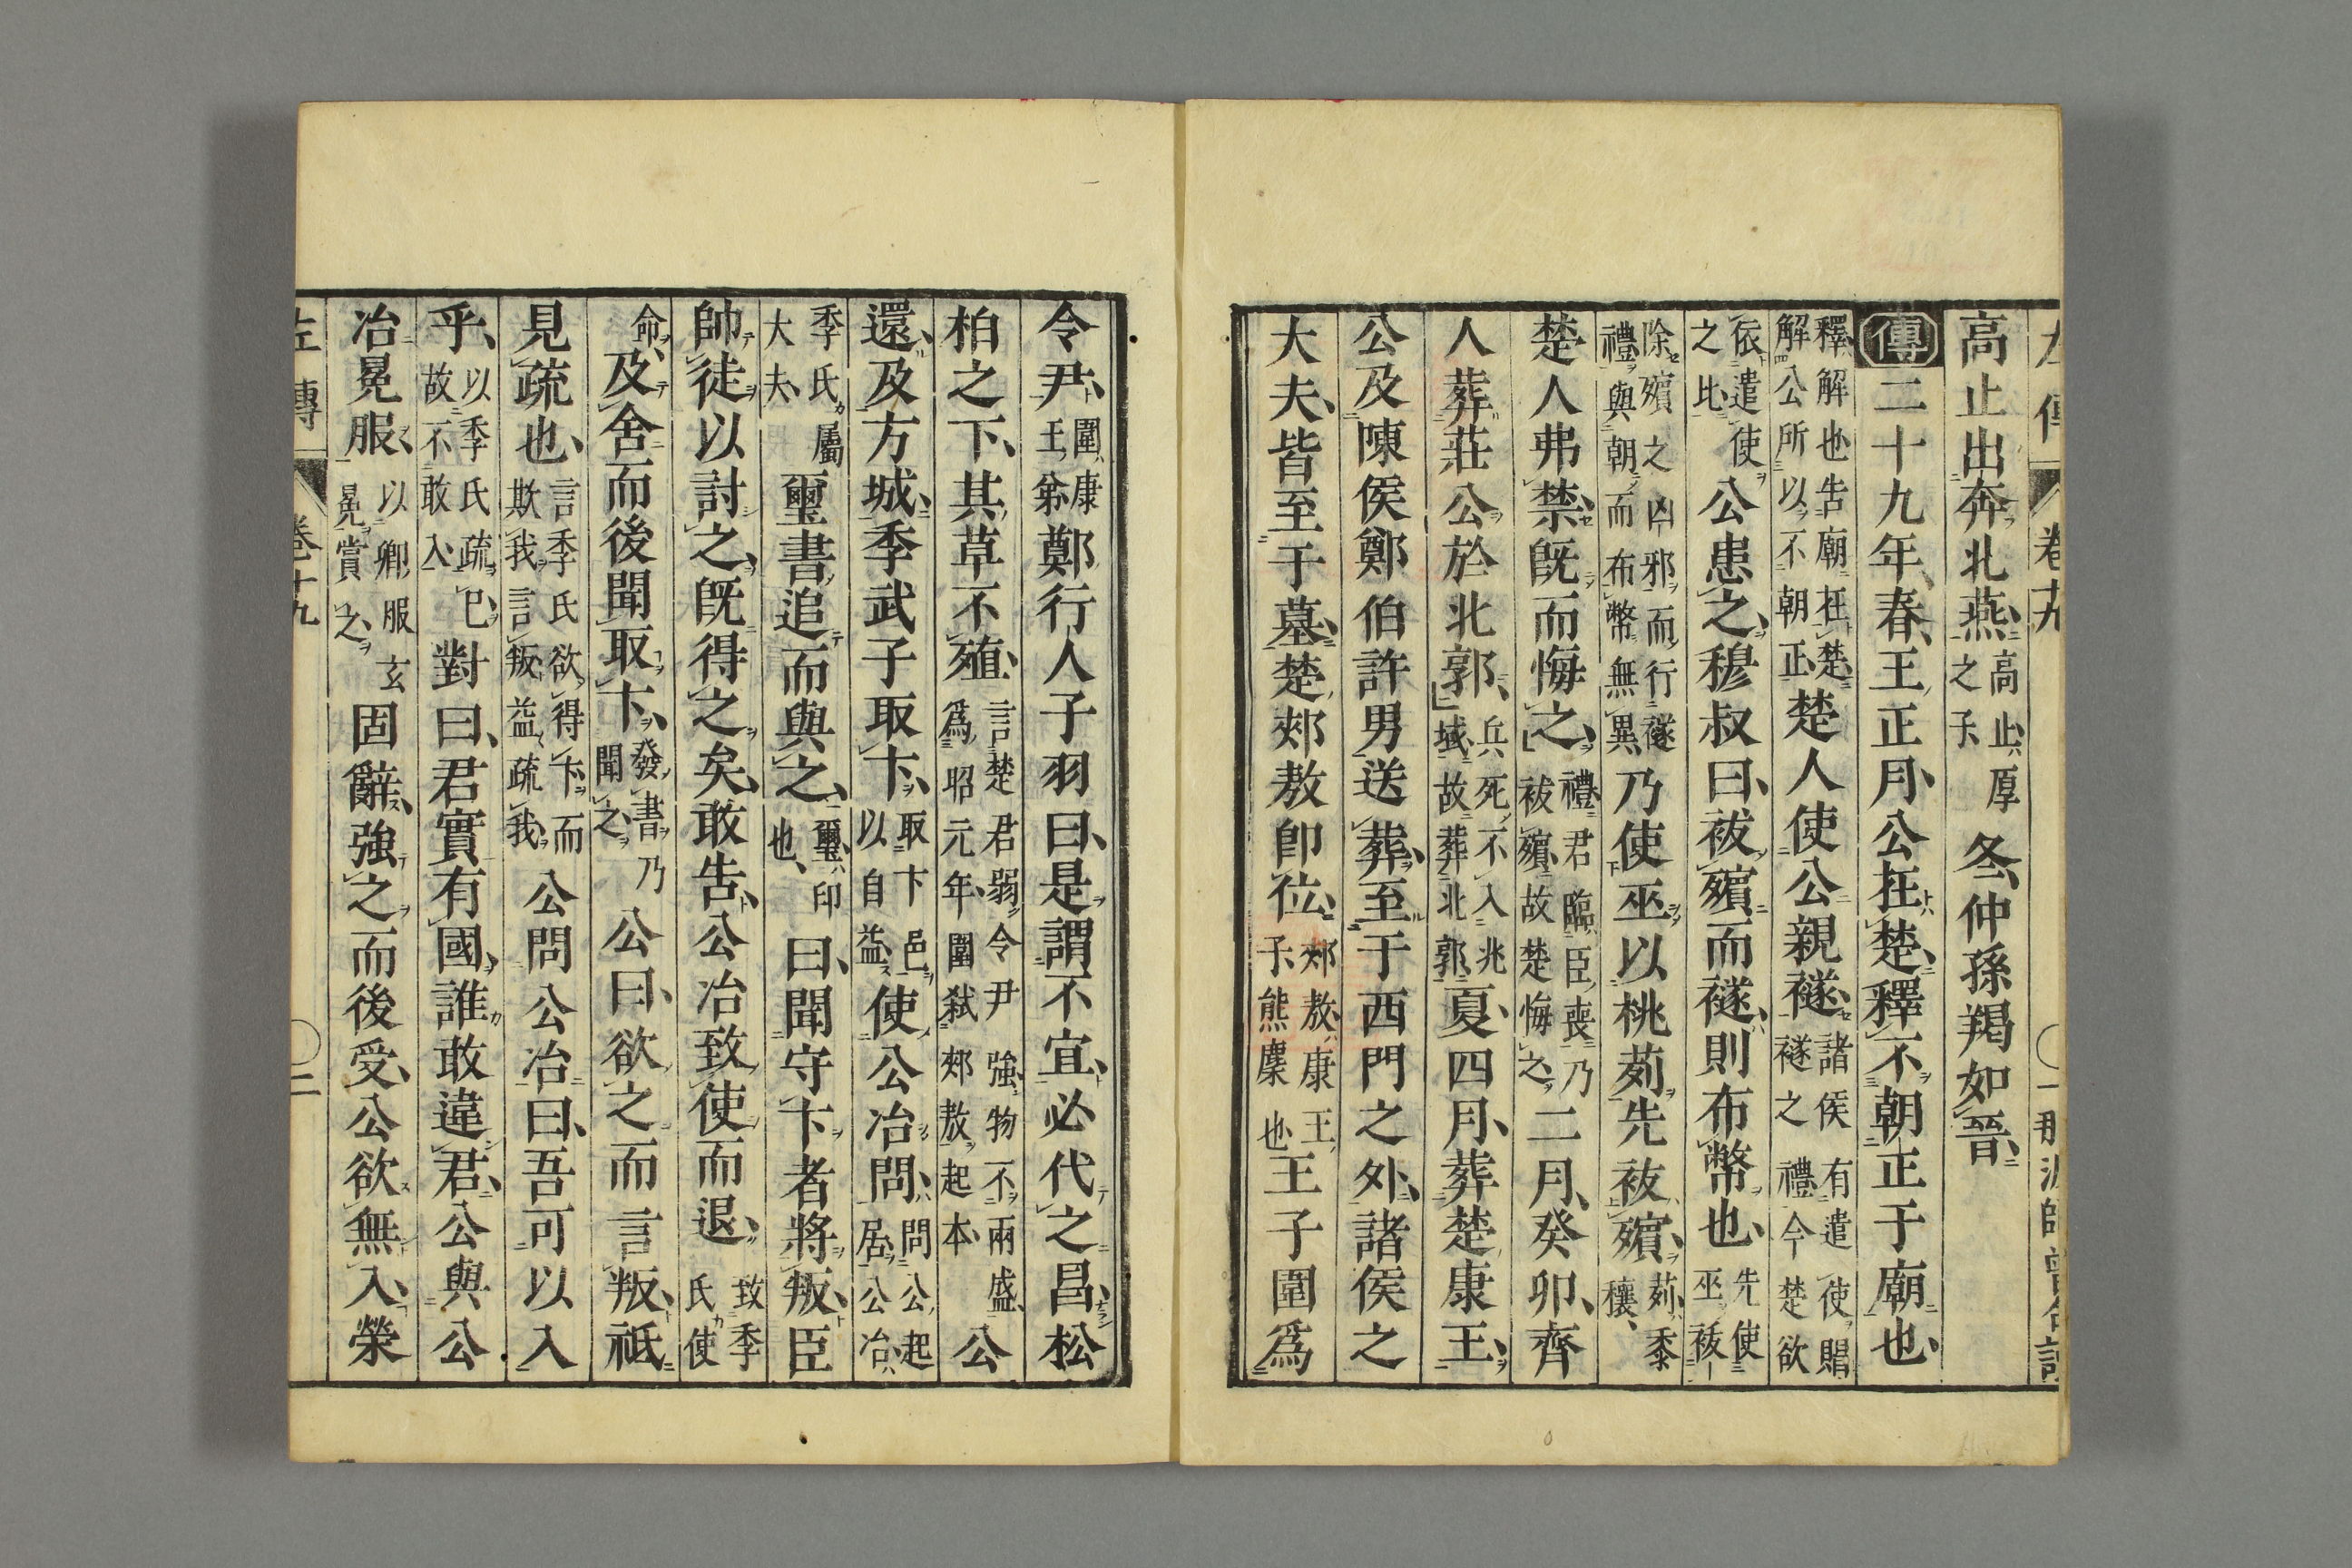 左傳 卷十九 一 那波師曾句讀
高止出奔北燕高止厚之子冬仲孫羯如晉
傳二十九年春王正月公在楚釋不朝正于廟也
釋解也告廟在楚解公所以不朝正楚人使公親襚諸侯有遣使賵襚之禮今楚欲
依遣使之比公患之穆叔曰祓殯而襚則布幣也先使巫祓
除殯之凶邪而行襚禮與朝而布幣無異乃使巫以桃茢先祓殯茢黍穰
楚人弗禁既而悔之禮君臨臣喪乃祓殯故楚悔之二月癸卯齊
人葬莊公於北郭兵死不入兆域故葬北郭夏四月葬楚康王
公及陳侯鄭伯許男送葬至于西門之外諸侯之
大夫皆至于墓楚郟敖卽位郟敖康王子熊麇也王子圍爲
令尹圍康王弟鄭行人子羽曰是謂不宜必代之昌松
柏之下其草不殖言楚君弱令尹強物不兩盛爲昭元年圍弒郟敖起本公
還及方城季武子取卞取卞邑以自益使公冶問問公起居公冶
季氏屬大夫璽書追而與之璽印也曰聞守卞者將叛臣
帥徒以討之既得之矣敢告公冶致使而退致季氏使
命及舍而後聞取卞發書乃聞之公曰欲之而言叛祇
見疏也言季氏欲得卞而欺我言叛益疏我公問公冶曰吾可以入
乎以季氏疏已故不敢入對曰君實有國誰敢違君公與公
冶冕服以卿服玄冕賞之固辭強之而後受公欲無入榮
左傳 卷十九 二